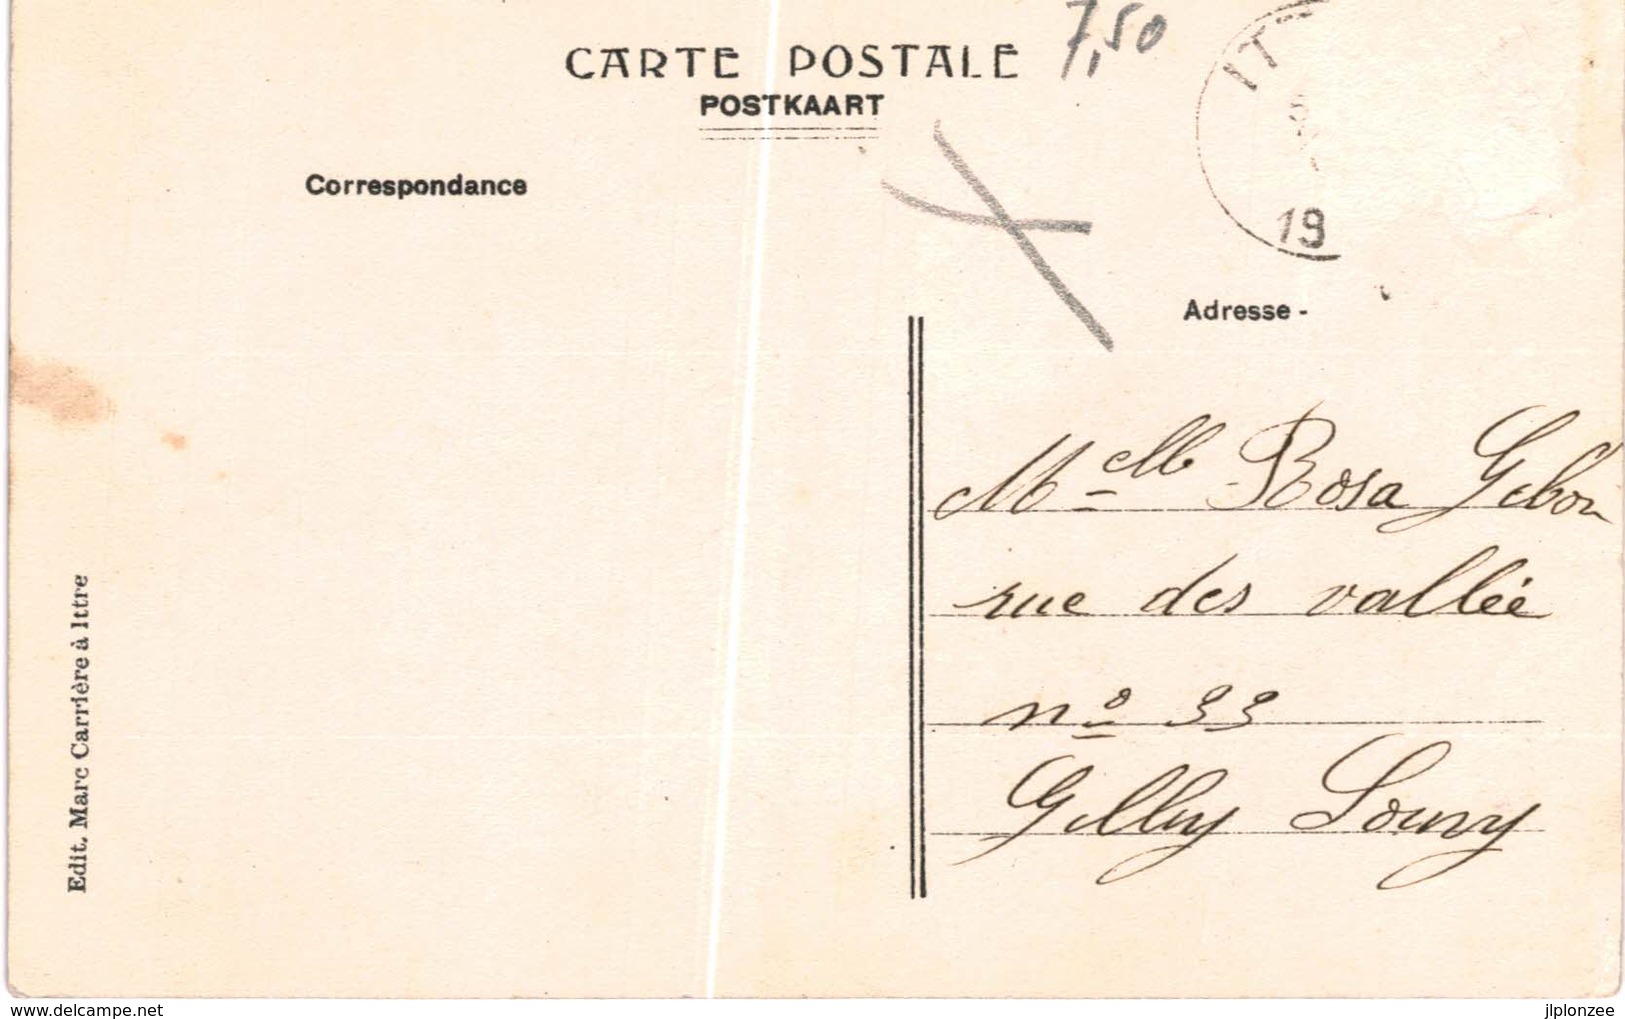 CARTE POSTALE
POSTKAART
7,50
IT
19
Correspondance
Adresse -
Mlle Rosa
rue des vallée
nº 33
Gilly
Edit. Marc Carrière à Ittre
https://www.delcampe.net
jlplonzee